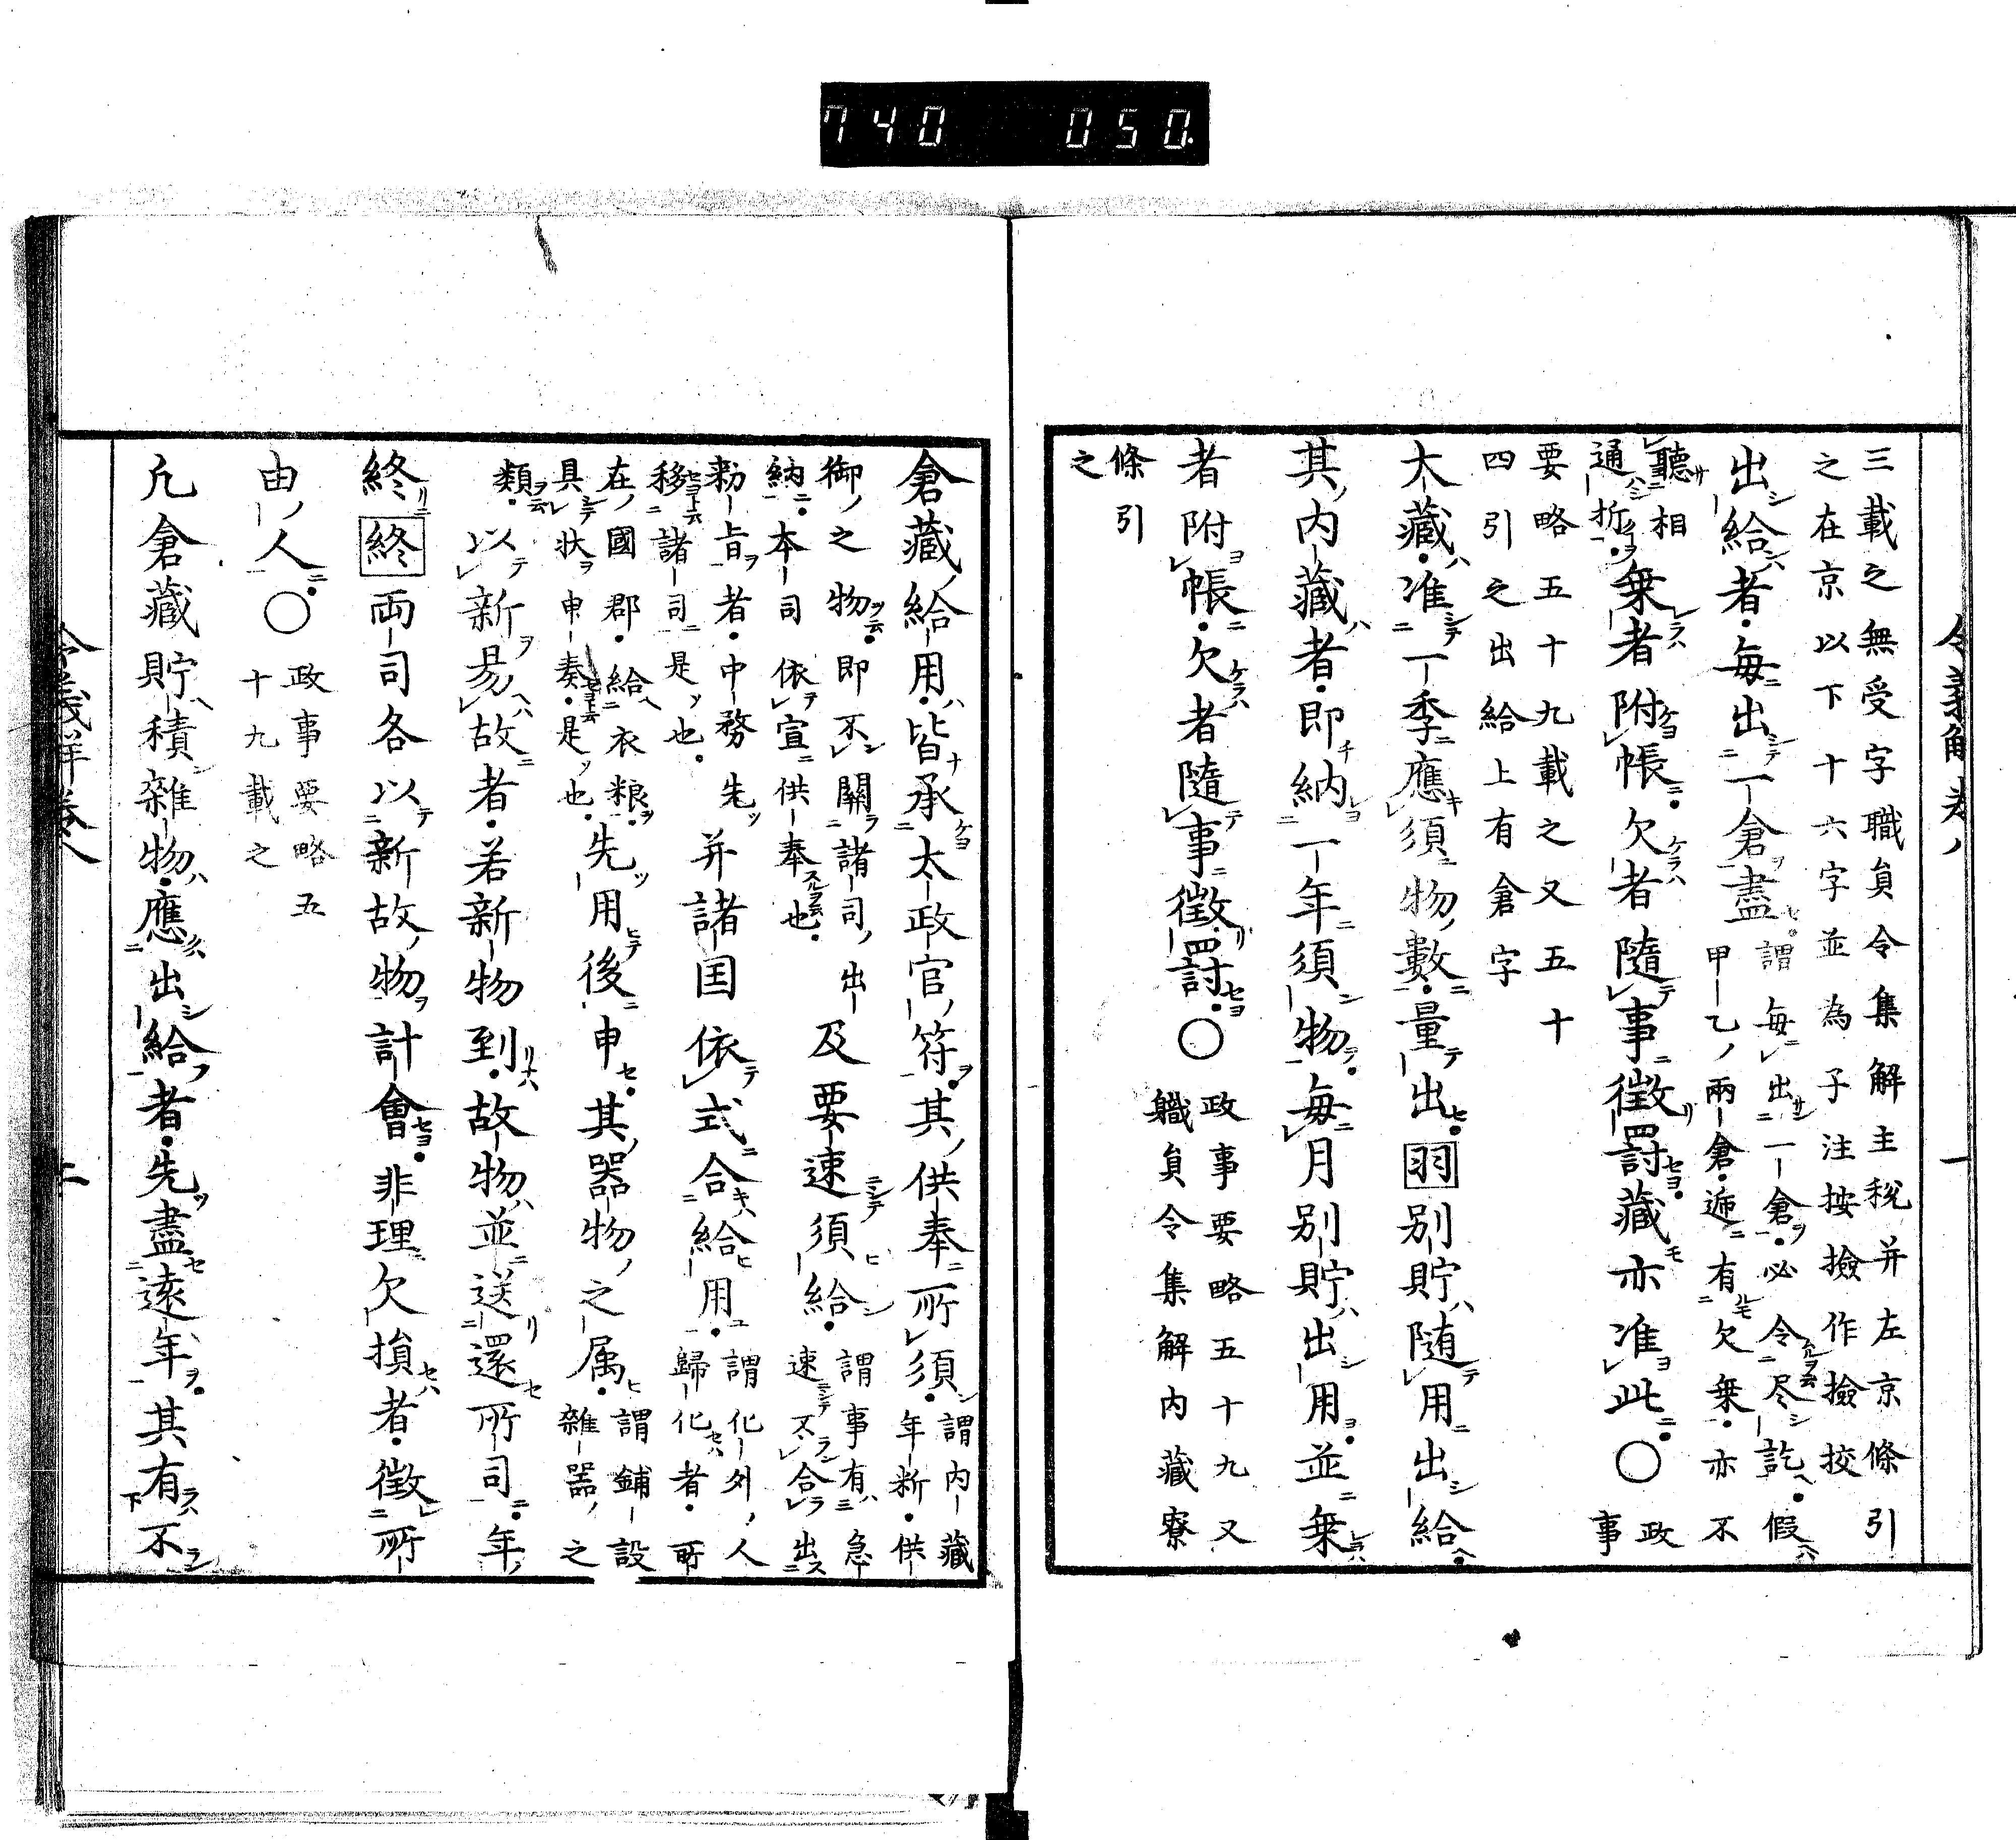 740 050.
令義解卷八
三載之無受字職負令集解主税并左京條引
之在京以下十六字並為子注按撿作撿挍
出給者每出一倉盡謂每出一倉必令尽訖假
甲乙兩倉遞有欠乗亦不
聽相
通折乗者附帳欠者隨事徵罸藏亦准此〇政
事
要略五十九載之又五十
四引之出給上有倉字
大藏准一季應須物數量出羽別貯随用出給
其內藏者即納一年須物每月別貯出用並乗
者附帳欠者隨事徵罸〇政事要略五十九又
軄負令集解內藏寮
條引
之
倉藏給用皆承太政官符其供奉所須謂內藏
年新供
御之物即不關諸司出
納本司依宣供奉也及要速須給謂事有急
速不合出
勑旨者中務先
移諸司是也并諸国依式合給用謂化外人
歸化者所
在國郡給衣粮
具狀申奏是也先用後申其器物之属謂鋪設
雜器之
類以新易故者若新物到故物並送還所司年
終終両司各以新故物計會非理欠損者徵所
由人〇政事要略五
十九載之
凢倉藏貯積雜物應出給者先盡遠年其有不
令義解卷八